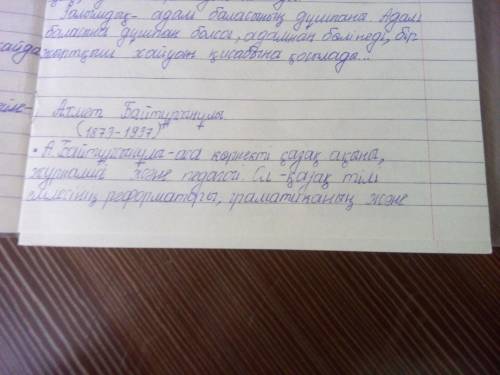 Ғалымдық - адам баласының душпаны. Адам
баласына душпан болса, адамнан бөлінеді, бір
жыртқыш хайуан қисабына қосылады...
Ахмет Байтұрғанұлы
(1873-1937)
• А. Байтұрсынұлы - аса көрнекті қазақ ақыны,
журналист және педагог. Ол - қазақ тіл
білімінің реформаторы, граматиканың және